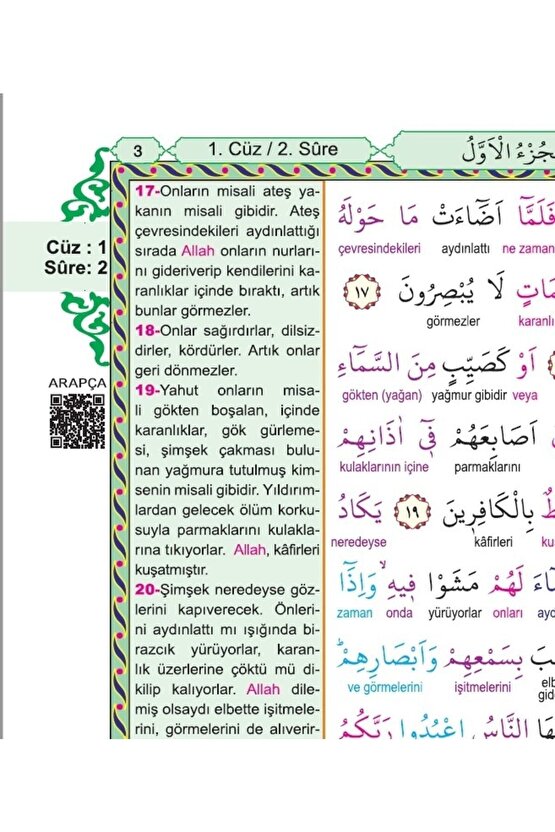 3
1. Cüz / 2. Sûre
اَلْجُزْءُ الْاَوَّلُ
Cüz : 1
Sûre: 2
ARAPÇA
17-Onların misali ateş ya-
kanın misali gibidir. Ateş
çevresindekileri aydınlattığı
sırada Allah onların nurları-
nı gideriverip kendilerini ka-
ranlıklar içinde bıraktı, artık
bunlar görmezler.
18-Onlar sağırdırlar, dilsiz-
dirler, kördürler. Artık onlar
geri dönmezler.
19-Yahut onların misa-
li gökten boşalan, içinde
karanlıklar, gök gürleme-
si, şimşek çakması bulu-
nan yağmura tutulmuş kim-
senin misali gibidir. Yıldırım-
lardan gelecek ölüm korku-
suyla parmaklarını kulakla-
rına tıkıyorlar. Allah, kâfirleri
kuşatmıştır.
20-Şimşek neredeyse göz-
lerini kapıverecek. Önleri-
ni aydınlattı mı ışığında bi-
razcık yürüyorlar, karan-
lık üzerlerine çöktü mü di-
kilip kalıyorlar. Allah dile-
miş olsaydı elbette işitmele-
rini, görmelerini de alıverir-
فَلَمَّا اَضَاءَتْ مَا حَوْلَهُ
çevresindekileri aydınlattı ne zaman
لَا يُبْصِرُونَ ﴿١٧﴾
görmezler
اَوْ كَصَيِّبٍ مِنَ السَّمَاءِ
gökten (yağan) yağmur gibidir veya
اَصَابِعَهُمْ فِي اٰذَانِهِمْ
kulaklarının içine parmaklarını
بِالْكَافِرِينَ ﴿١٩﴾ يَكَادُ
neredeyse kâfirleri
لَهُمْ مَشَوْا فِيهِ وَاِذَا
zaman onda yürüyorlar onları
بِسَمْعِهِمْ وَاَبْصَارِهِمْ
ve görmelerini işitmelerini
النَّاسُ اعْبُدُوا رَبَّكُمُ